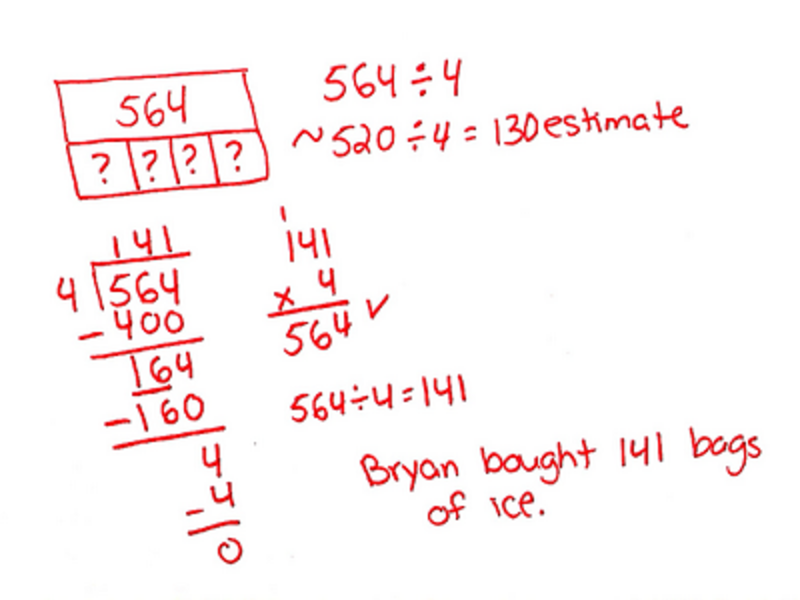 564
? ? ? ?
564 ÷ 4
~520 ÷ 4 = 130 estimate
141
4 564
-400
164
-160
4
-4
0
1
141
x 4
564 ✓
564÷4=141
Bryan bought 141 bags
of ice.